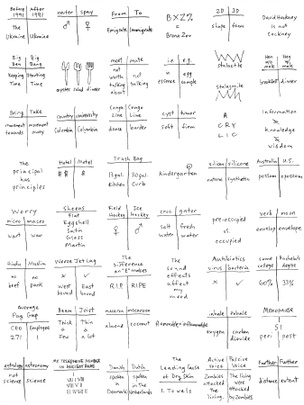 Before 1991
After 1991
The Ukraine
Ukraine
neuter
spay
From
To
Emigrate
Immigrate
BXZ%
=
Bronx Zoo
2D
3D
shape
form
David Hockney
is not
Cockney
Big Ben
Big Ben
Keeping Time
Starting Time
oyster
soup
dinner
moot
mute
not worth talking about
not talking
i.e.
e.g.
essence
example
Stalactite
Stalagmite
Hen
Hen
breakfast
dinner
Bring
Take
movement towards
movement away
country
university
Colombia
Columbia
Conga Line
Conga Line
dance
border
cyst
tumor
soft
firm
A
CRY
LIC
Information
Knowledge
wisdom
The
principal
has
principles
Hotel
Motel
Trash Bag
13gal.
30gal.
Kitchen
Curb
Kindergarten
silicon
silicone
natural
synthetic
Australia
U.S.
possum
opossum
Worry
micro
macro
wart
war
Sheens
Flat
Eggshell
Satin
Gloss
Martin
Field Hockey
Ice Hockey
croc
gator
salt water
fresh water
pre-occupied
vs.
occupied
verb
noun
envelop
envelope
Hindu
Muslim
no beef
no pork
Worse Jetlag
west bound
East bound
The
difference
an "E" makes
RIP
RIPE
The
sound
effects
affect
my
mood
Antibiotics
virus
bacteria
some college
bachelor's degree
60%
33%
Average
Pay Gap
CEO
Employee
271
1
Beam
Joist
Thick & Few
Thin & a lot
macaron
macaroon
almond
coconut
flammable = inflammable
inhale
exhale
oxygen
carbon dioxide
Menopause
51
peri
post
astrology
astronomy
not science
science
My telephone number in Ancient Rome
Danish
Dutch
spoken in Denmark
spoken in the Netherlands
The
Leading Cause
of Dry Skin
1. Towels
Active Voice
Passive Voice
Zombies attacked the living.
The living were attacked by Zombies.
Farther
Further
distance
extent